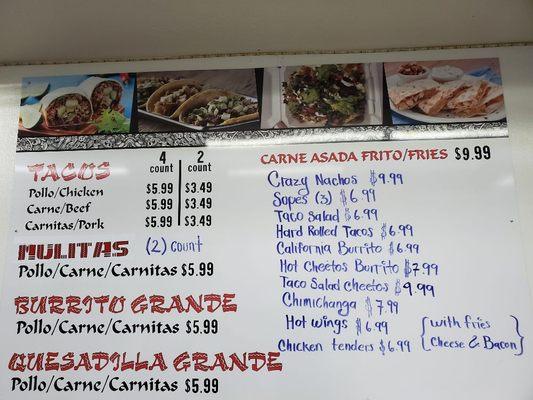 TACOS
4 count 2 count
Pollo/Chicken $5.99 $3.49
Carne/Beef $5.99 $3.49
Carnitas/Pork $5.99 $3.49
MULITAS (2) count
Pollo/Carne/Carnitas $5.99
BURRITO GRANDE
Pollo/Carne/Carnitas $5.99
QUESADILLA GRANDE
Pollo/Carne/Carnitas $5.99
CARNE ASADA FRITO/FRIES $9.99
Crazy Nachos $9.99
Sopes (3) $6.99
Taco Salad $6.99
Hard Rolled Tacos $6.99
California Burrito $6.99
Hot Cheetos Burrito $7.99
Taco Salad Cheetos $9.99
Chimichanga $7.99
Hot wings $6.99
Chicken tenders $6.99
{with fries
Cheese & Bacon}